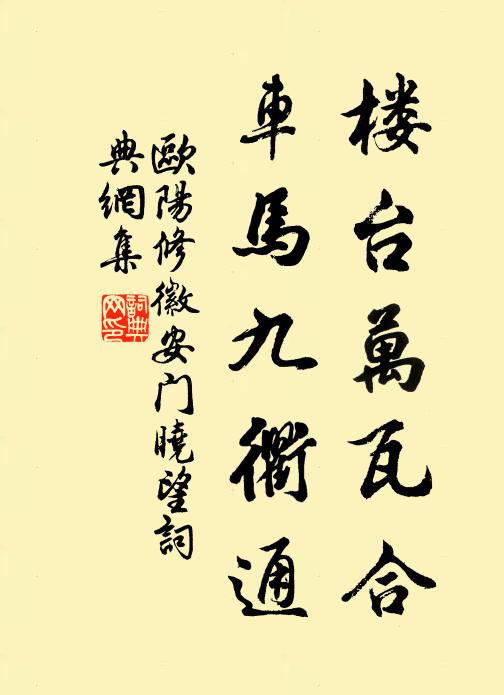 楼台萬瓦合
車馬九衢通
歐陽修徽安门曉望詞
典網集
詞典网印